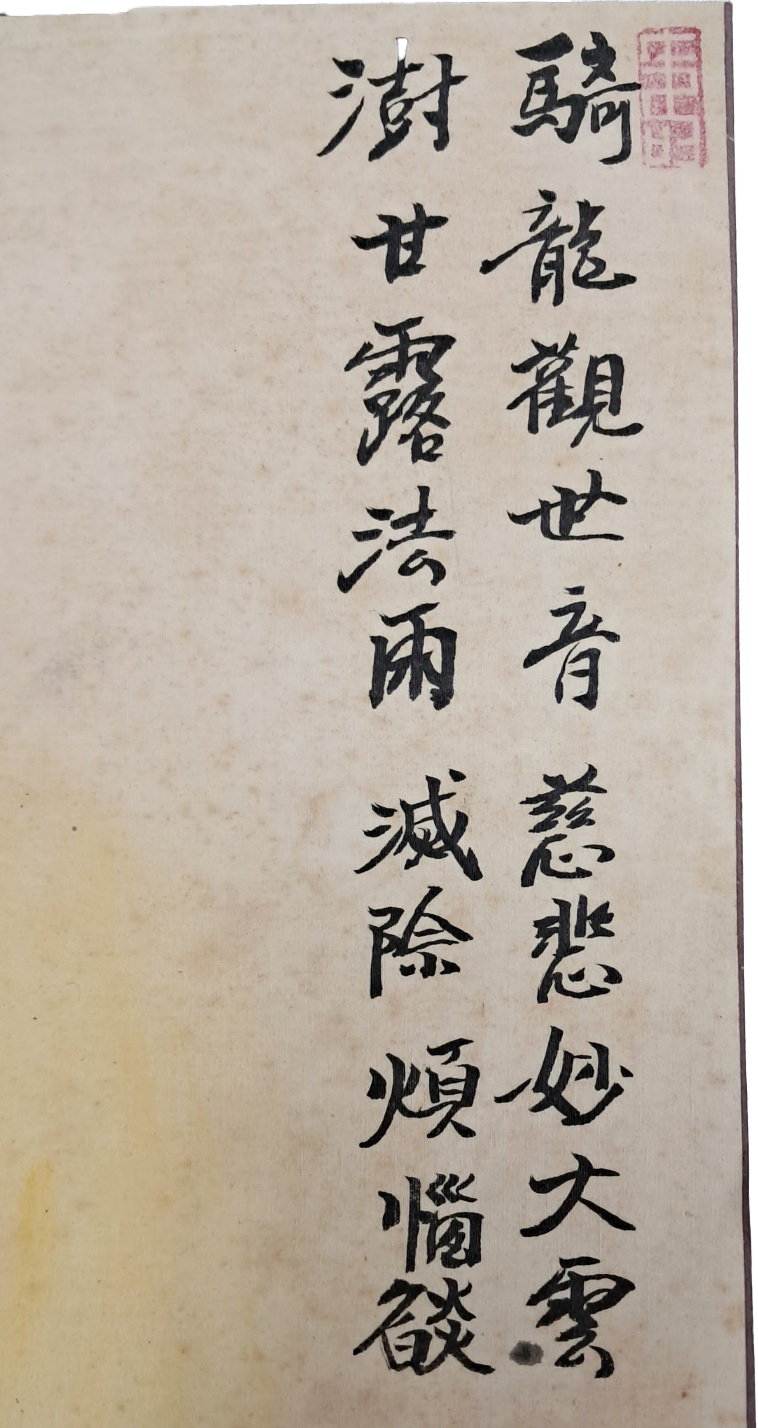 騎龍觀世音慈悲妙大雲
澍甘露法雨滅除煩惱燄